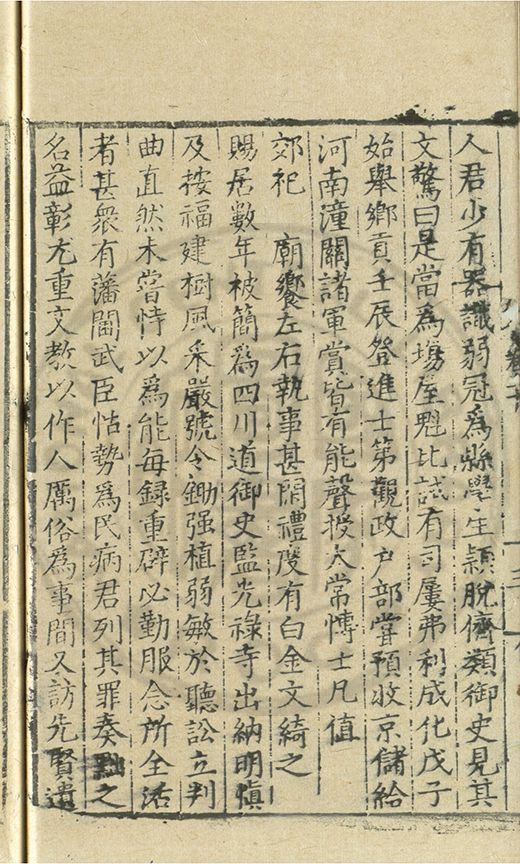 人君少有器識弱冠爲縣學生穎脫儕類御史見其
文驚曰是當為塲屋魁比試有司屢弗利成化戊子
始舉鄉貢壬辰登進士第觀政户部嘗預收京儲給
河南潼關諸軍賞皆有能聲授太常博士凡值
郊祀　廟饗左右執事甚閑禮度有白金文綺之
賜居數年被簡爲四川道御史監光祿寺出納明慎
及按福建樹風采嚴號令鋤强植弱敏於聽訟立判
曲直然未嘗恃以為能每録重辟必勤服念所全活
者甚衆有藩閫武臣怙勢爲民病君列其罪奏黜之
名益彰尤重文教以作人厲俗為事間又訪先賢遺